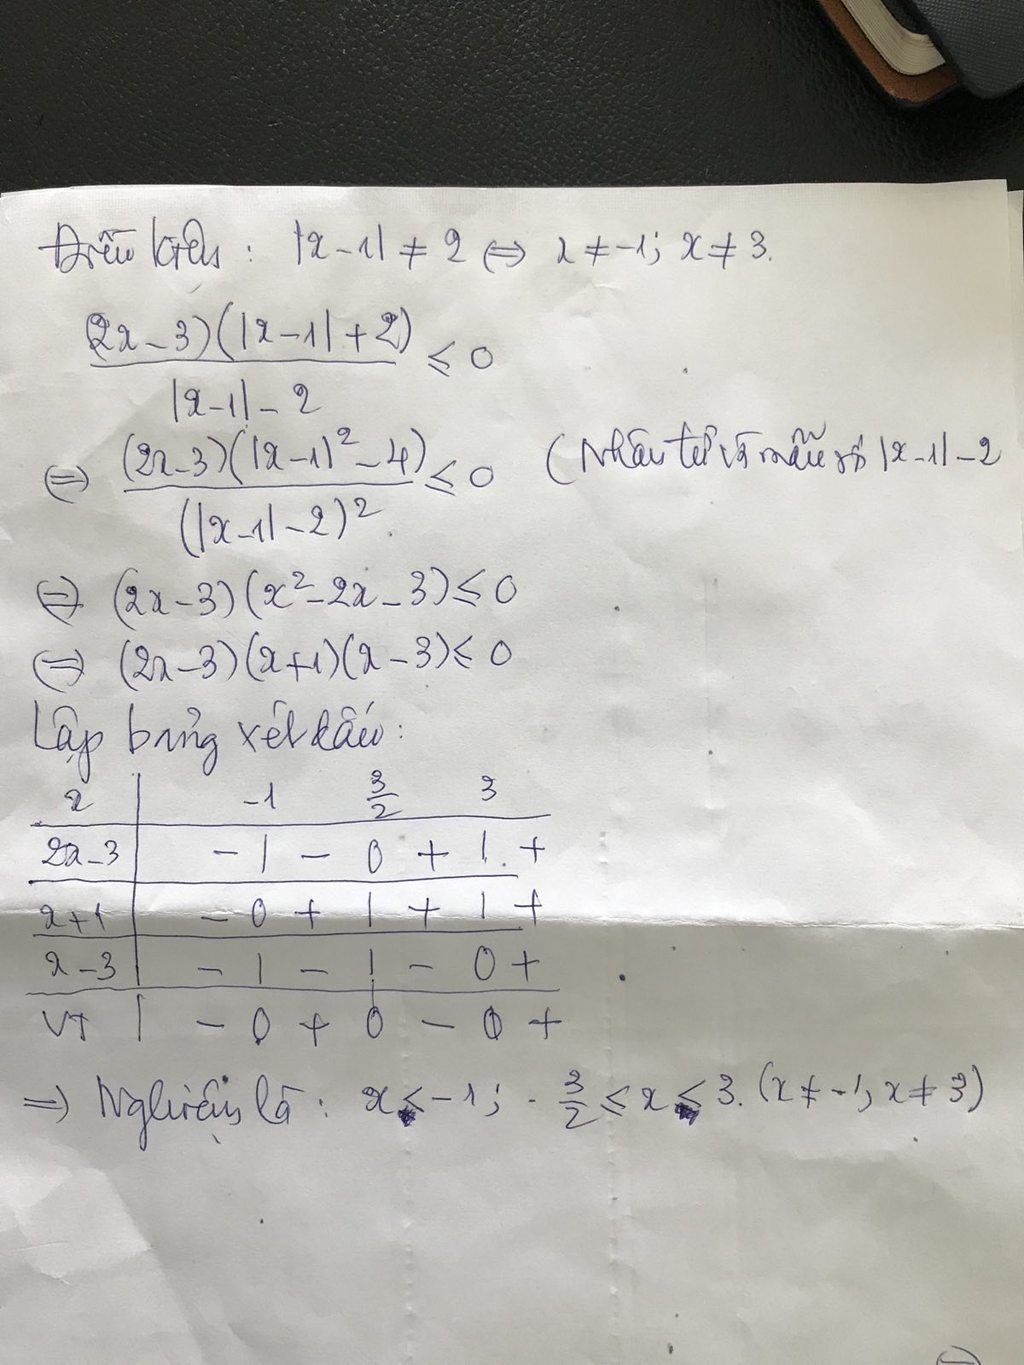 Điều kiện: |x-1| ≠ 2 ⇔ x ≠ -1; x ≠ 3.
(2x-3)(|x-1|+2)
≤ 0
|x-1| - 2
⇔ (2x-3)(|x-1|² - 4)
≤ 0 (Nhân tử và mẫu số |x-1| - 2
(|x-1| - 2)²
⇔ (2x-3)(x²-2x-3) ≤ 0
⇔ (2x-3)(x+1)(x-3) ≤ 0
Lập bảng xét dấu:
x | -1 3/2 3
2x-3 | - | - 0 + | +
x+1 | - 0 + | + | +
x-3 | - | - | - 0 +
VT | - 0 + 0 - 0 +
⇒ Nghiệm là: x ≤ -1; 3/2 ≤ x ≤ 3. (x ≠ -1; x ≠ 3)